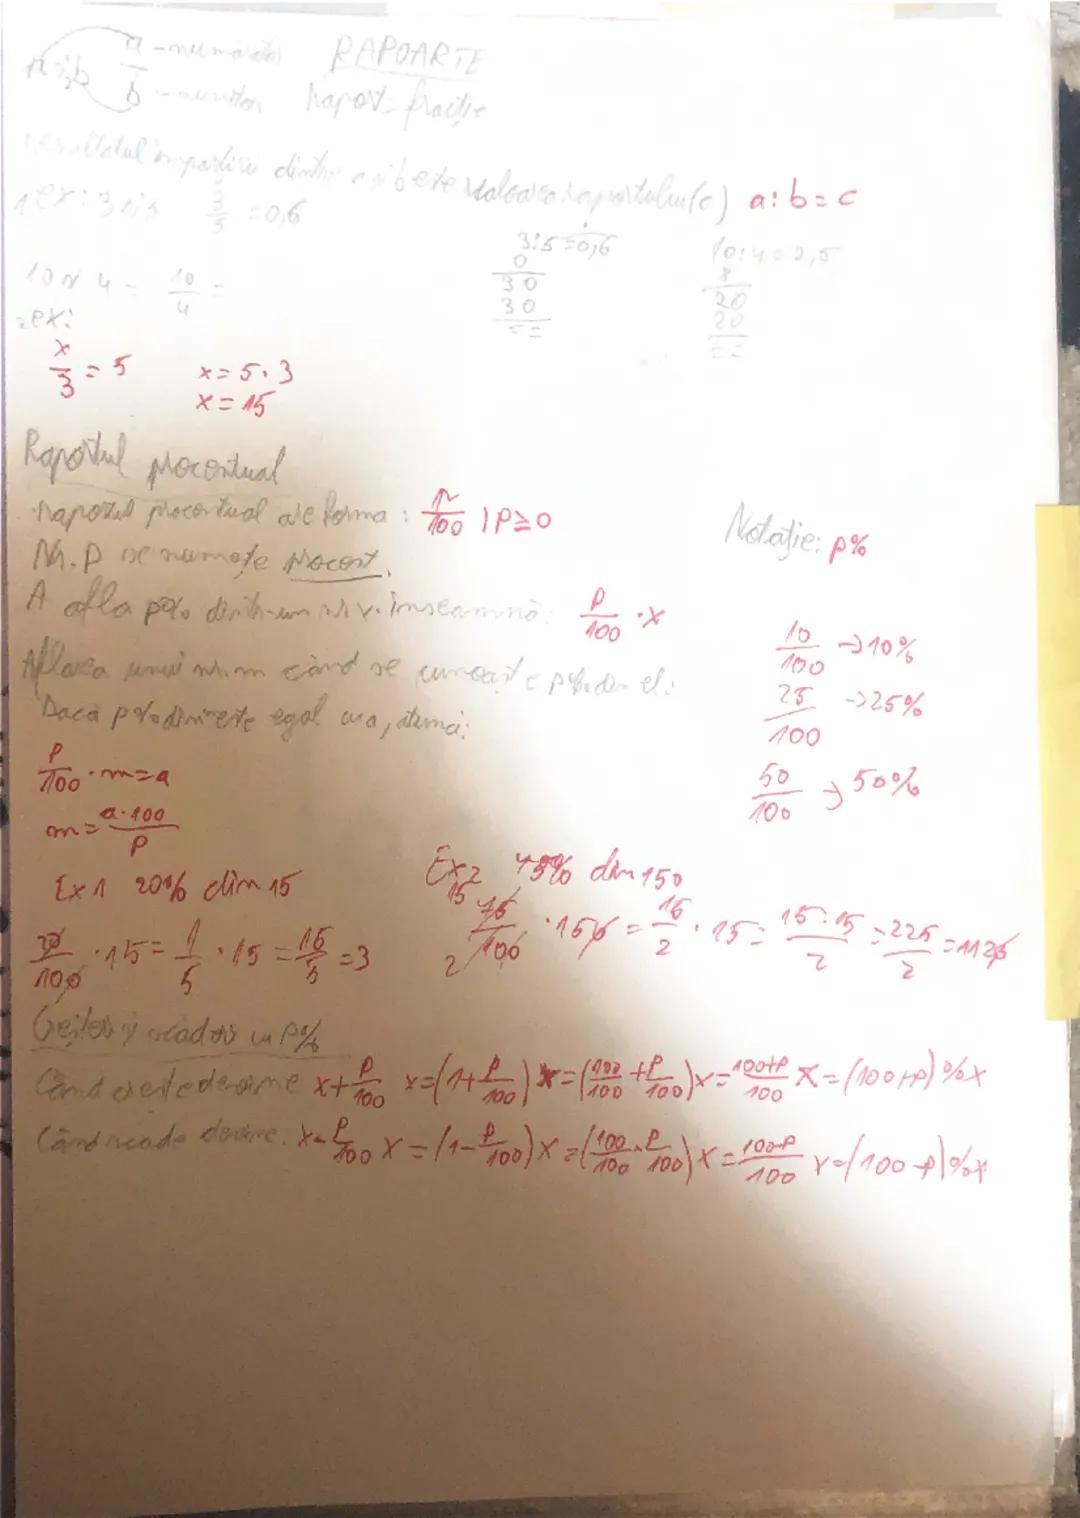 a - numărător RAPOARTE
a și b
b - numitor Raport = fracție
rezultatul împărțirii dintre a și b este valoarea raportului (c) a:b=c
1 ex: 3 și 5 3/5 = 0,6
3:5=0,6
0
30
30
==
10:4=2,5
8
20
20
==
10 și 4 = 10/4 =
2 ex:
x/3 = 5 x = 5·3
x = 15
Raportul procentual
raportul procentual are forma: p/100, p≥0
Notație: p%
Nr. p se numește procent.
A afla p% dintr-un nr x. înseamnă: p/100 · x
10/100 → 10%
25/100 → 25%
50/100 → 50%
Aflarea unui nr. m când se cunoaște p% din el:
Dacă p% din m este egal cu a, atunci:
p/100 · m = a
m = a·100/p
Ex 1 20% din 15
20/100 · 15 = 1/5 · 15 = 15/5 = 3
Ex 2 din 150
15 75/100 2 · 150 = 15/2 · 15 = 15·15/2 = 225/2 =
Creșteri și scăderi cu p%
Când crește devine x + p/100 x = (1 + p/100) x = (100/100 + p/100) x = 100+p/100 x = (100+p)%x
Când scade devine. x - p/100 x = (1 - p/100) x = (100/100 - p/100) x = 100-p/100 x = (100-p)%x